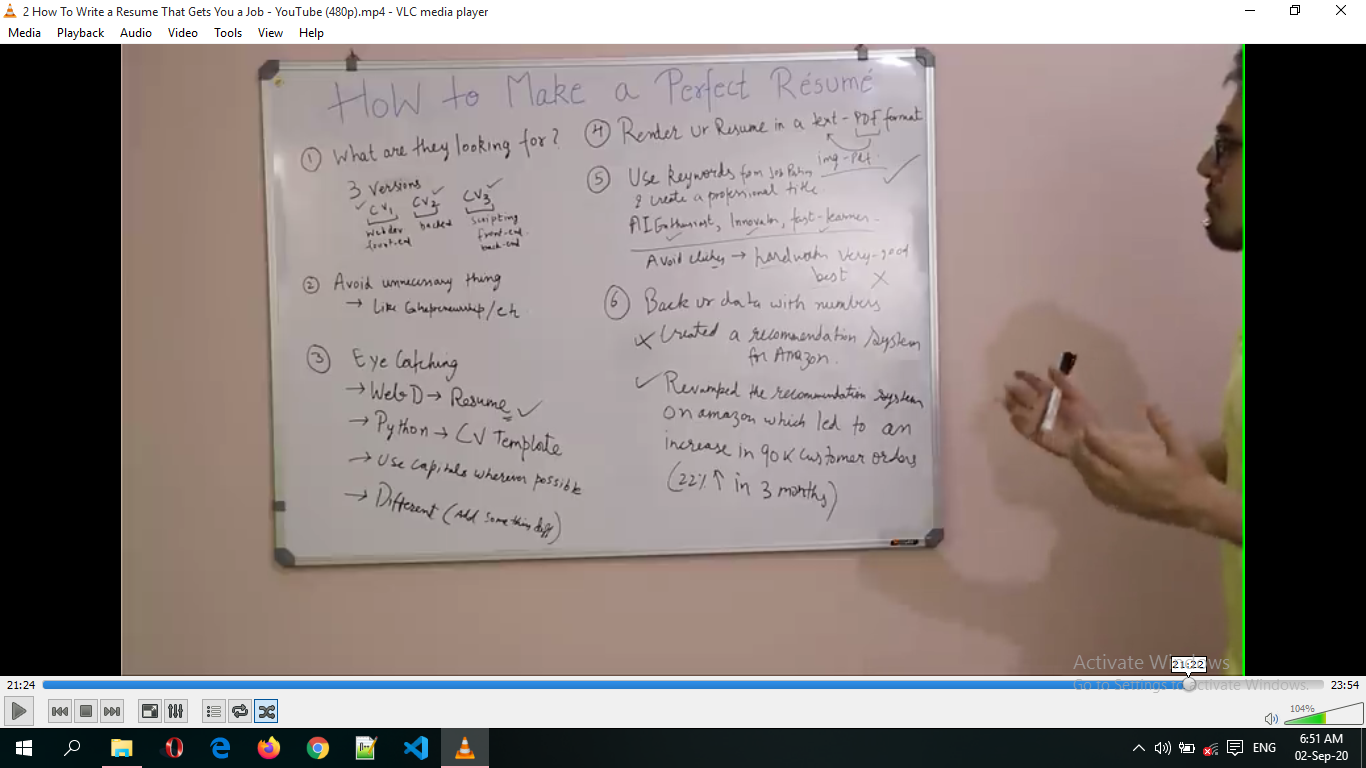 2 How To Write a Resume That Gets You a Job - YouTube (480p).mp4 - VLC media player
Media Playback Audio Video Tools View Help
HOW to Make a Perfect Résumé
① What are they looking for?
3 Versions
CV1 CV2 CV3
Webdev backed Scripting
front-end front-end
back-end
② Avoid unnecessary thing
→ Like
③ Eye Catching
→ Web D → Resume ✓
→ Python → CV Template
→ Use capitals wherever possible
→ Different (Add something diff)
④ Render ur Resume in a text-PDF format
img-
⑤ Use keywords from Job
& create a professional title
AI Enthusiast, Innovator, fast-learner
Avoid → very-good
best X
⑥ Back ur data with numbers
X Created a recommendation system
for Amazon.
✓ Revamped the recommendation system
on amazon which led to an
increase in 90K customer orders
(22% ↑ in 3 months)
Activate Windows
Go to Settings to activate Windows.
21:22
21:24
23:54
104%
ENG
6:51 AM
02-Sep-20